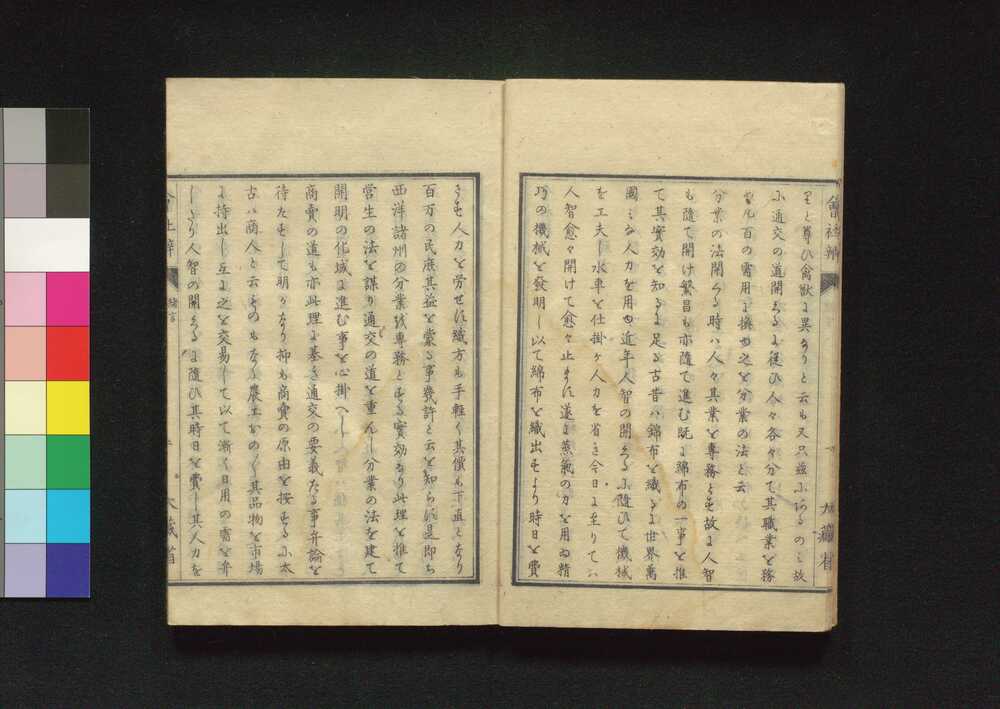 會社辨
大藏省
里と尊ひ禽獣に異なりと云も又只茲にあるのミ故
に通交の道開くるに從ひ人々各々分て其職業を務
め凡百の需用に換也之を分業の法と云
分業の法開くる時ハ人々其業を專務とも故に人智
も隨て開け繁昌も亦隨て進む既に綿布の一事を推
て其實効を知るに足る古昔ハ綿布を織るに世界萬
國ミな人力を用ゐ近年人智の開くるに隨ひて機械
を工夫し水車を仕掛ケ人力を省き今日に至りてハ
人智愈々開けて愈々止まに遂に蒸氣の力を用ゐ精
巧の機械を發明し以て綿布を織出もより時日を費
さも人力を労せに織方も手輕く其價も下直となり
百万の民庶其益を蒙る事幾許と云を知らに是即ち
西洋諸州の分業或專務ともる實効なり此理を推て
営生の法を謀り通交の道を重んし分業の法を建て
開明の化域に進む事を心掛へし
商賣の道も亦此理に基き通交の要義たる事弁論を
待たもして明かなり抑も商賣の原由を按もるに太
古ハ商人と云ものもなく農工おのく其品物を市場
に持出し互に之を交易して以て漸く日用の需を弁
しより人智の開くるに隨ひ其時日を費し其人力を
會社辨
緒言
大藏省